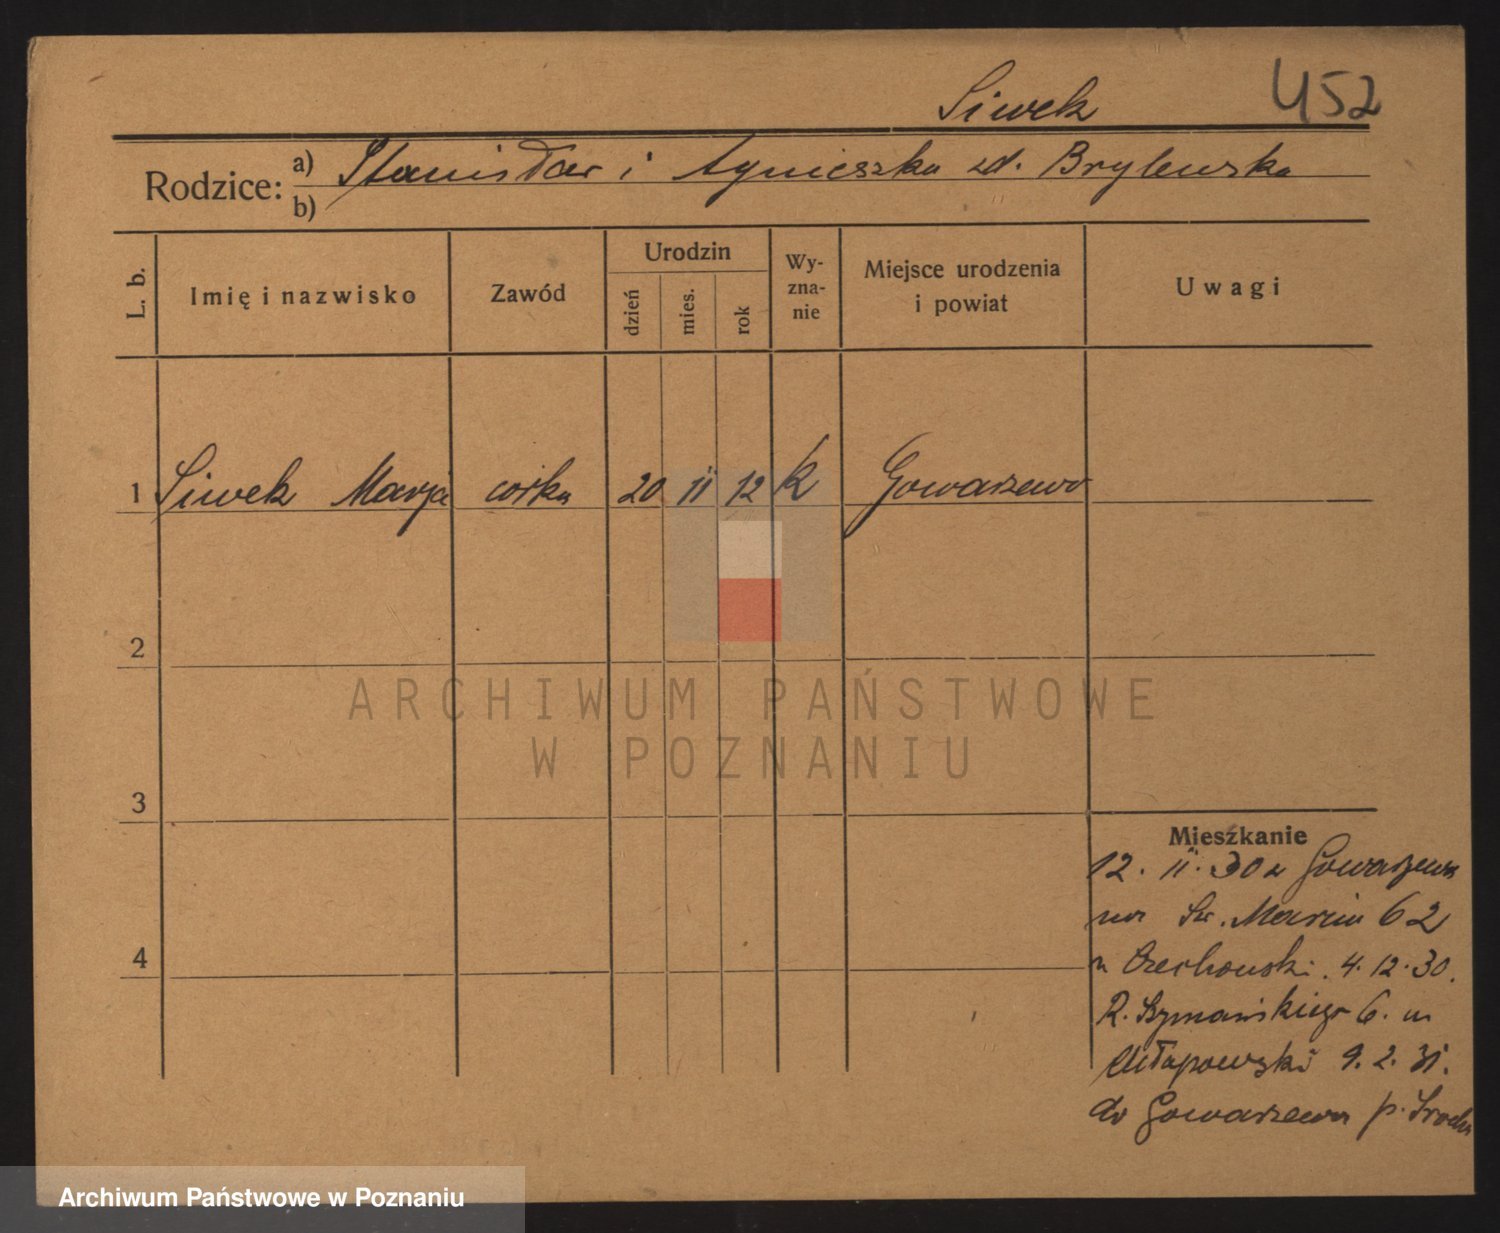 Siwek 452
Rodzice: a) Stanisław i Agnieszka zd. Brylewska
b)
L. b. Imię i nazwisko Zawód Urodzin dzień mies. rok Wy-zna-nie Miejsce urodzenia i powiat Uwagi
1 Siwek Marja córka 20 11 12 k Gowarzewo
2
ARCHIWUM PAŃSTWOWE
W POZNANIU
3
4
Mieszkanie
12. 11. 30 z Gowarzewa
na Św. Marcin 62
u Orechowski. 4. 12. 30.
R. Szymańskiego 6. u
9. 2. 31.
do Gowarzewa p. Środa
Archiwum Państwowe w Poznaniu